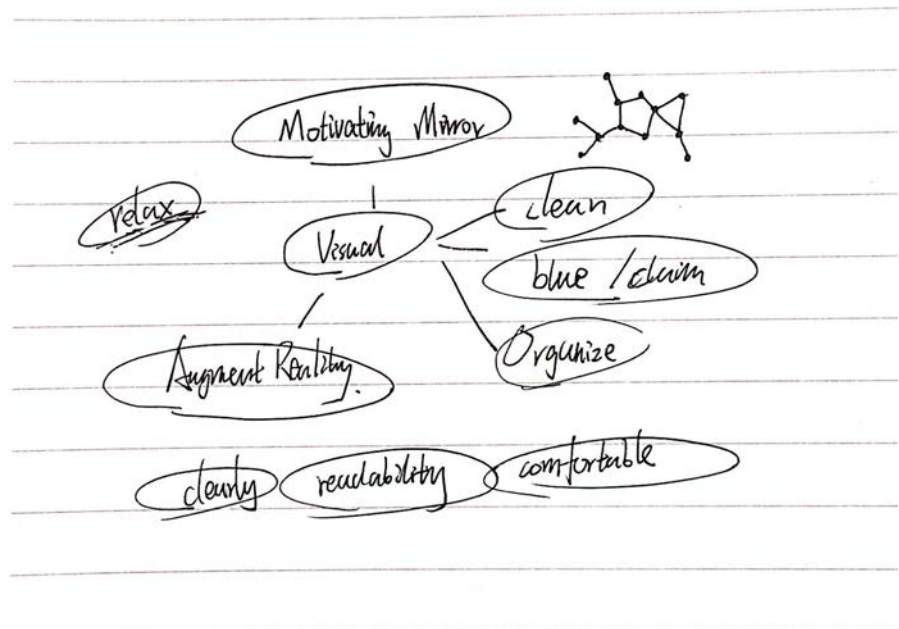 Motivating Mirror
relax
Visual
clean
blue /
Organize
Augment Reality.
clearly
readability
comfortable